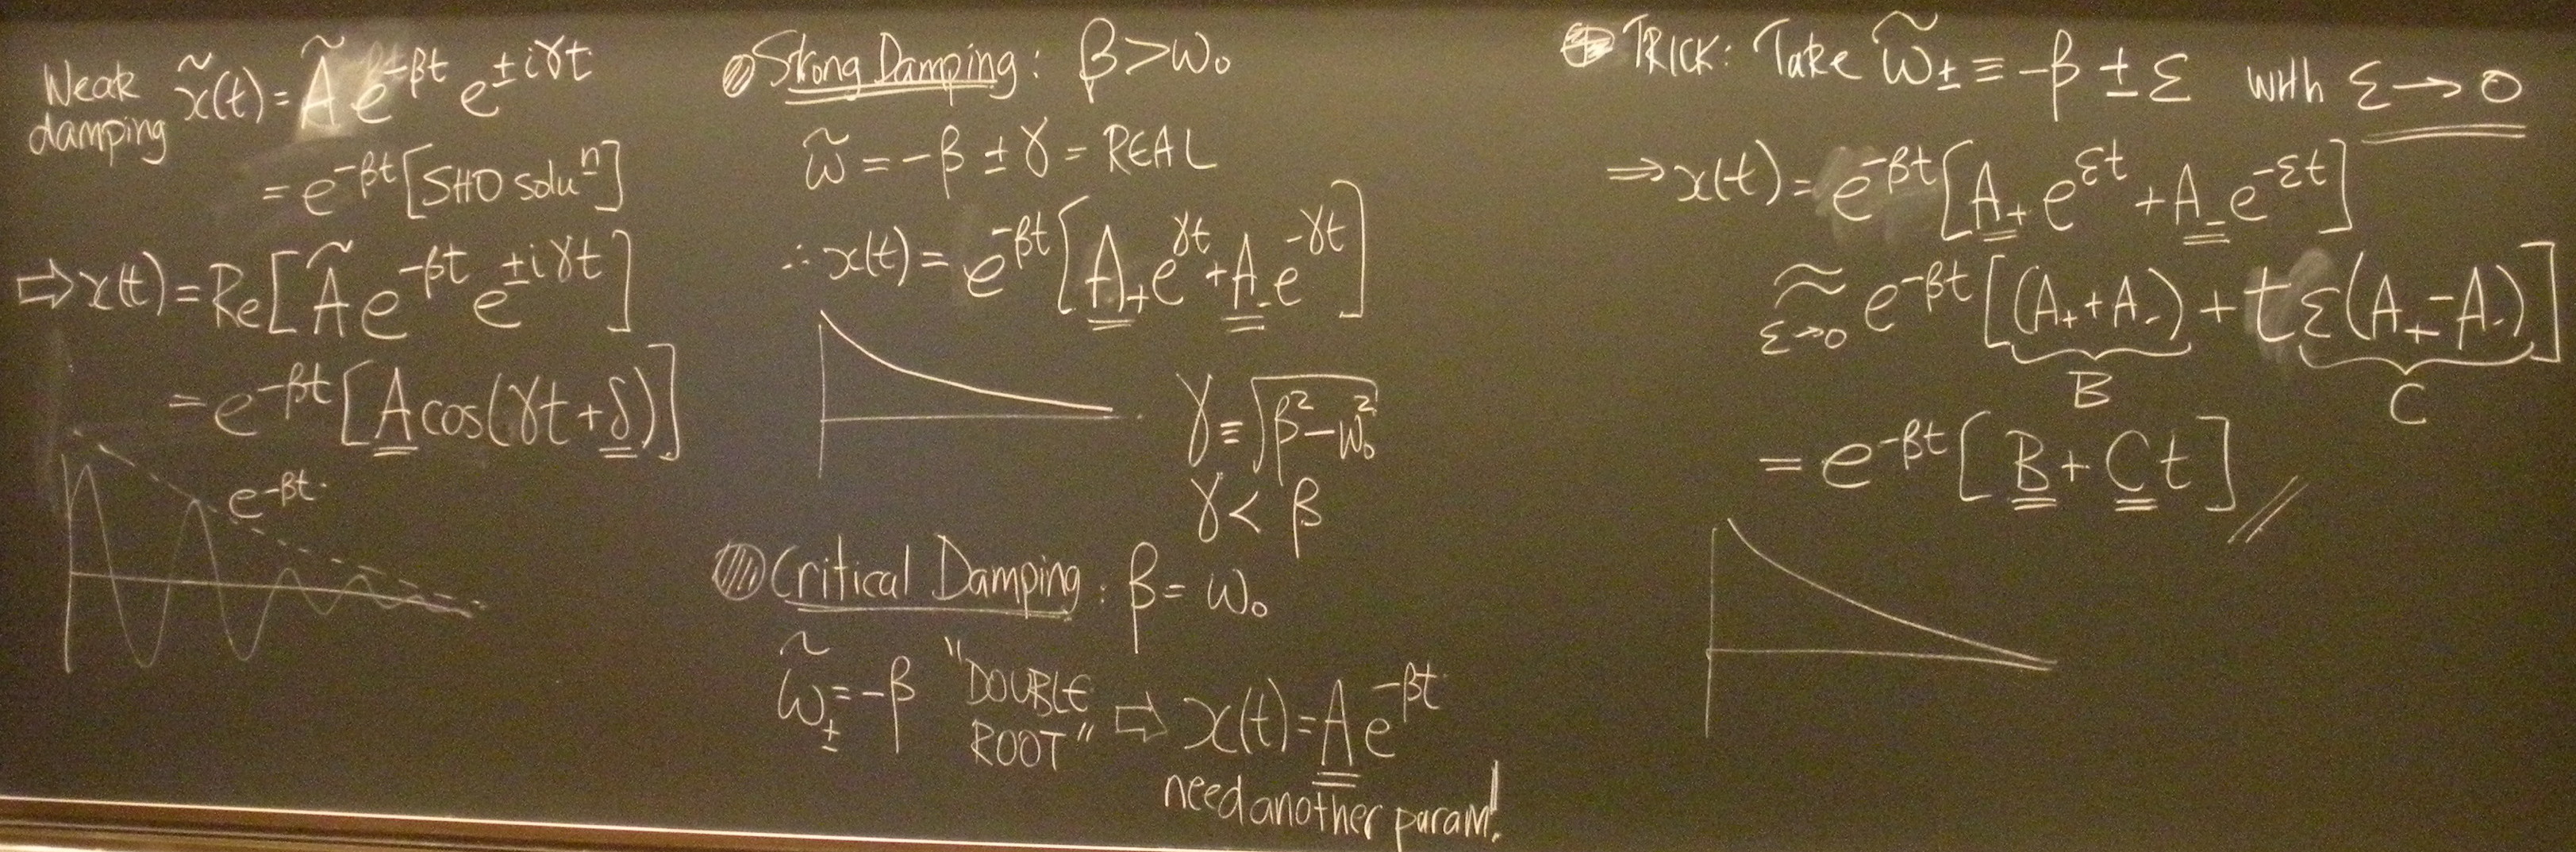 Weak damping x̃(t) = Ã e^{-βt} e^{±iγt}
= e^{-βt} [SHO soluⁿ]
⇨ x(t) = Re[Ã e^{-βt} e^{±iγt}]
= e^{-βt} [A cos(γt + δ)]
e^{-βt}
Strong Damping: β > ω₀
ω̃ = -β ± γ = REAL
∴ x(t) = e^{-βt} [A₊ e^{γt} + A₋ e^{-γt}]
γ ≡ √(β² - ω₀²)
γ < β
Critical Damping: β = ω₀
ω̃± = -β "DOUBLE ROOT" ⇨ x(t) = A e^{-βt}
need another param!
TRICK: Take ω̃± ≡ -β ± ε with ε → 0
⇒ x(t) = e^{-βt} [A₊ e^{εt} + A₋ e^{-εt}]
≈ e^{-βt} [(A₊ + A₋) + t ε(A₊ - A₋)]
ε→0
B
C
= e^{-βt} [B + C t] //